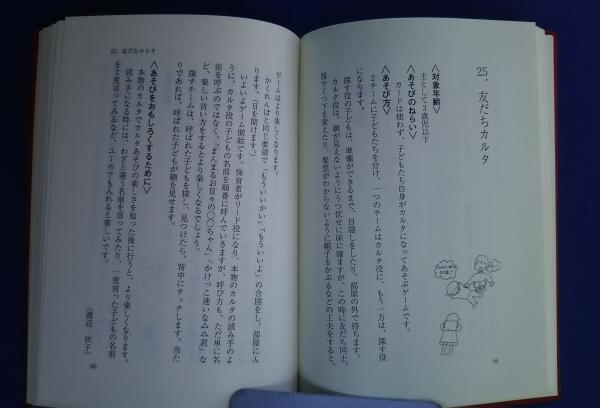 25. 友だちカルタ
〈対象年齢〉
主として3歳児以下
〈あそびのねらい〉
カードは使わず、子どもたち自身がカルタになってあそぶゲームです。
〈あそび方〉
2チームに子どもたちを分け、一つのチームはカルタ役に、もう一方は、探す役
になります。
探す役の子どもは、準備ができるまで、目隠しをしたり、部屋の外で待ちます。
カルタ役は、顔が見えないようにうつ伏せに床に寝ますが、この時に友だち同士、
服やくつ下を変えたり、髪型がわからないように帽子をかぶるなどの工夫をすると、
94
25. 友だちカルタ
ゲームはより楽しくなります。
かくれんぼと同じ要領で「もういいかい」「もういいよ」の合図をし、部屋に入
ります。(目を開けます。)
いよいよゲーム開始です。保育者がリード役になり、本物のカルタの読み手のよ
うに、カルタ役の子どもの名前を順番に呼んでいきますが、呼び方も、ただ単に名
前を呼ぶのではなく、「まんまるお目々の〇〇ちゃん」「かけっこ速いな△△君」な
ど、楽しい言い方をするとより楽しくなるでしょう。
探すチームは、呼ばれた子どもを探し、見つけたら、背中にタッチします。当た
りであれば、呼ばれた子どもが顔を見せます。
〈あそびをおもしろくするために〉
本物のカルタでカルタあそびの楽しさを知った後に行うと、より楽しくなります。
読み手になる時には、わざと違う名前を言ってみたり、一度言った子どもの名前
を2度言ってみるなど、ユーモアも入れると楽しいです。
(渡辺 欣子)
95